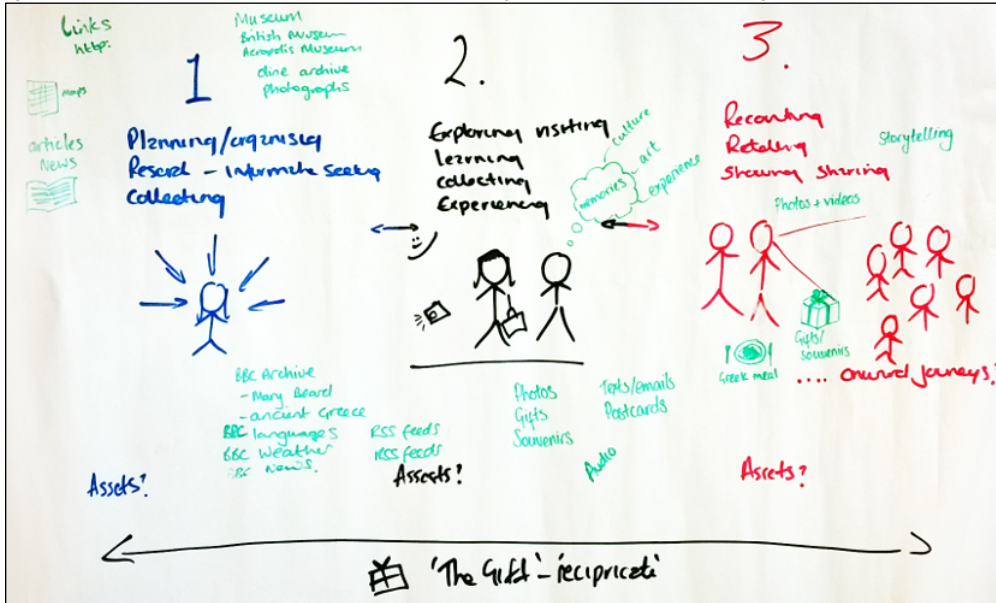 Links
http:
maps
articles
News
Museum
British Museum
Acropolis Museum
cline archive
photographs
1
Planning/organising
Research - Informate Seeking
Collecting
BBC Archive
- Mary Beard
- ancient Greece
BBC languages
BBC Weather
BBC News.
RSS feeds
RSS feeds
Assets?
2.
Exploring visiting
learning
collecting
Experiencing
memories
culture
art
experience
Photos
Gifts
Souvenirs
Texts/emails
Postcards
Audio
Assests?
3.
Recounting
Retelling
Showing Sharing
Storytelling
Photos + videos
Gifts/
souvenirs
Greek meal
.... onward journeys?
Assets?
'The Gift' - recipricate